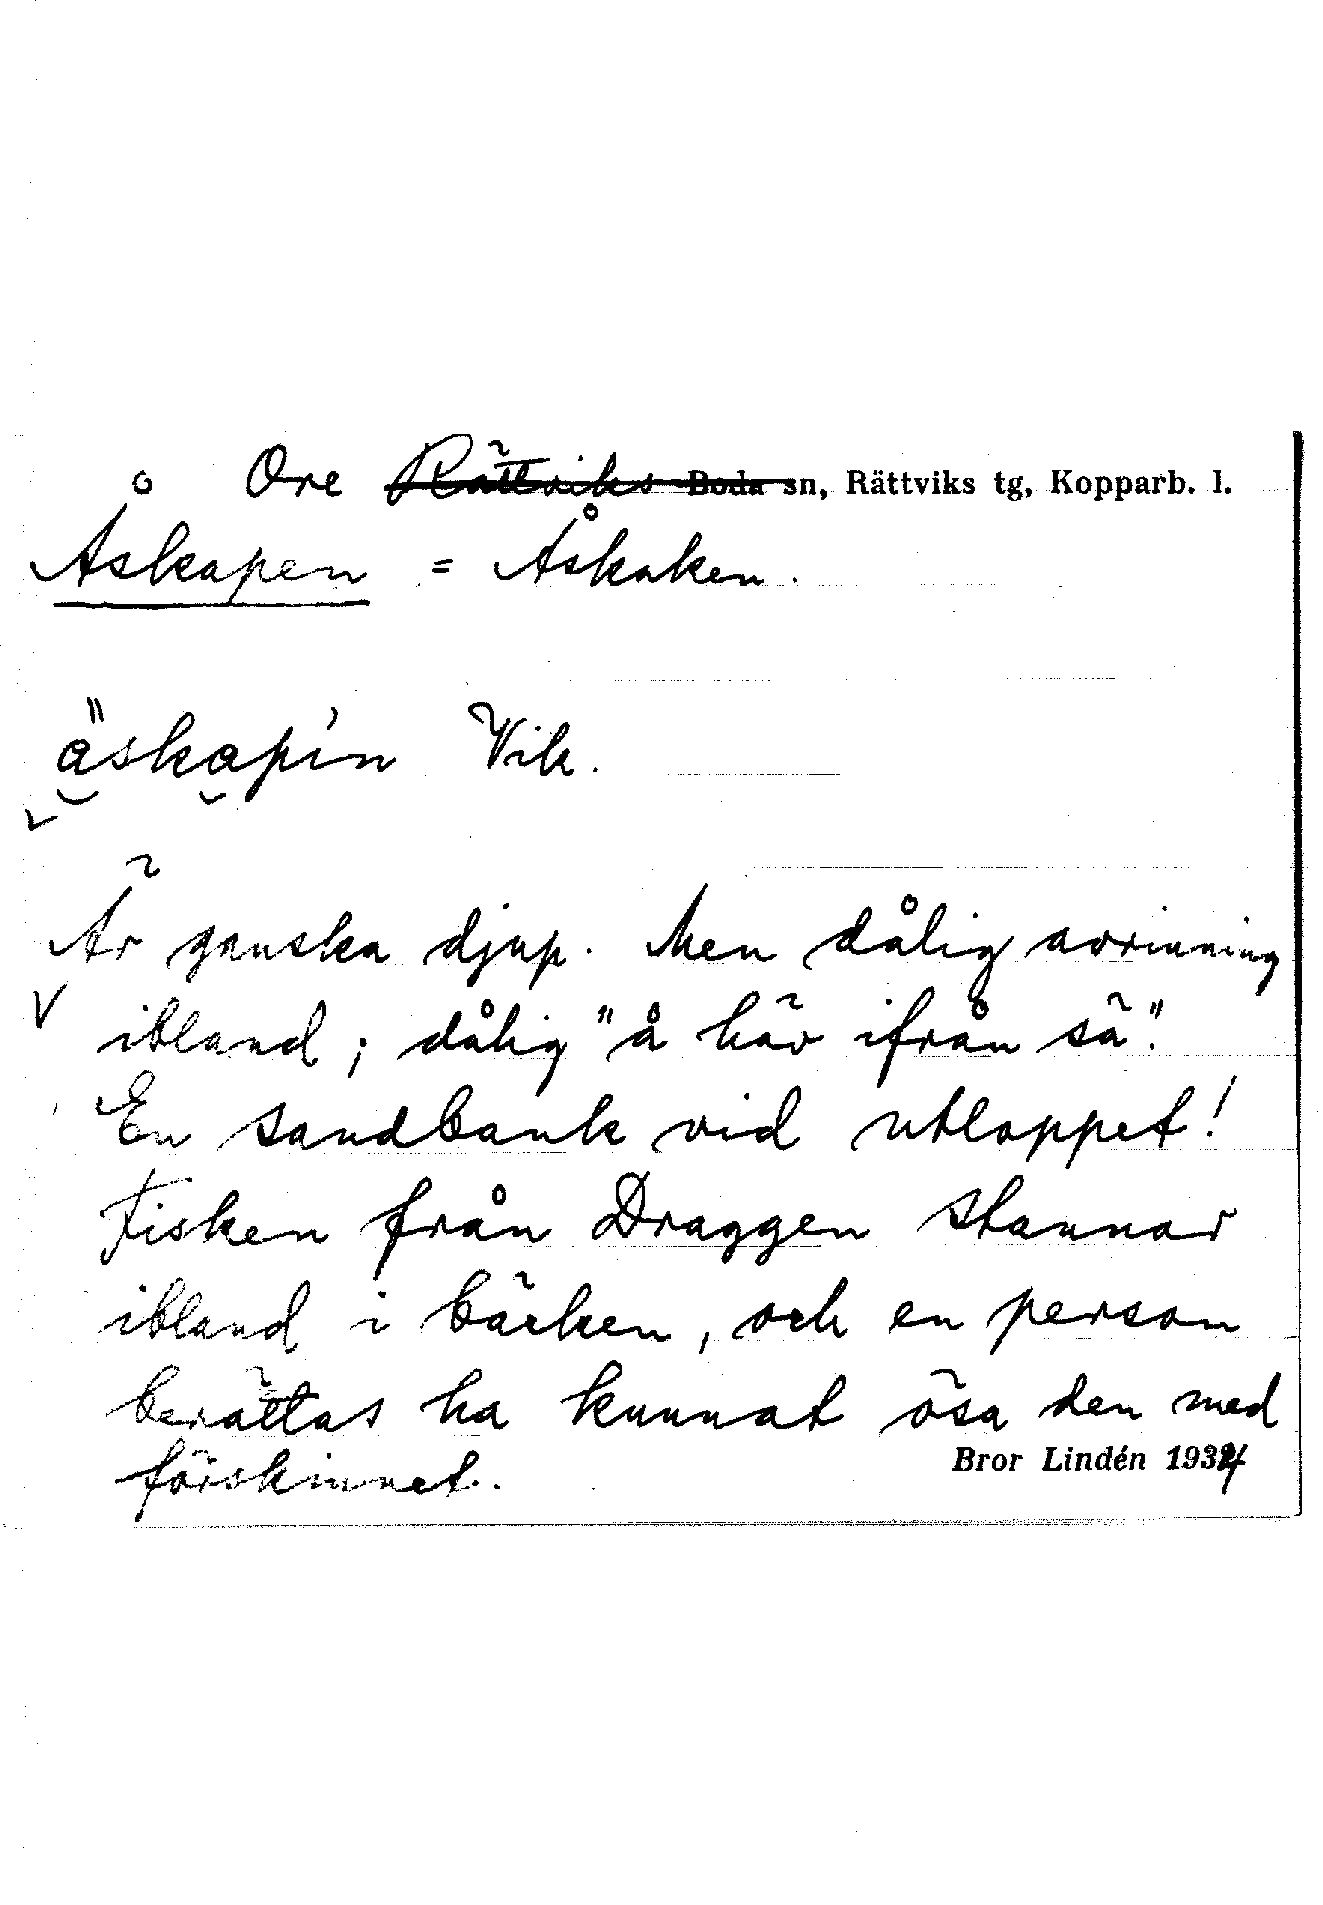 Ore Rättviks Boda sn, Rättviks tg, Kopparb. l.
Åskapen = Åskaken.
äskapin Vik.
Är ganska djup. Men dålig avrinning
ibland; dålig "å häv ifrån sä".
En sandbank vid utloppet!
Fisken från Draggen stannar
ibland i bäcken, och en person
berättas ha kunnat ösa den med
förskinnet.
Bror Lindén 1934